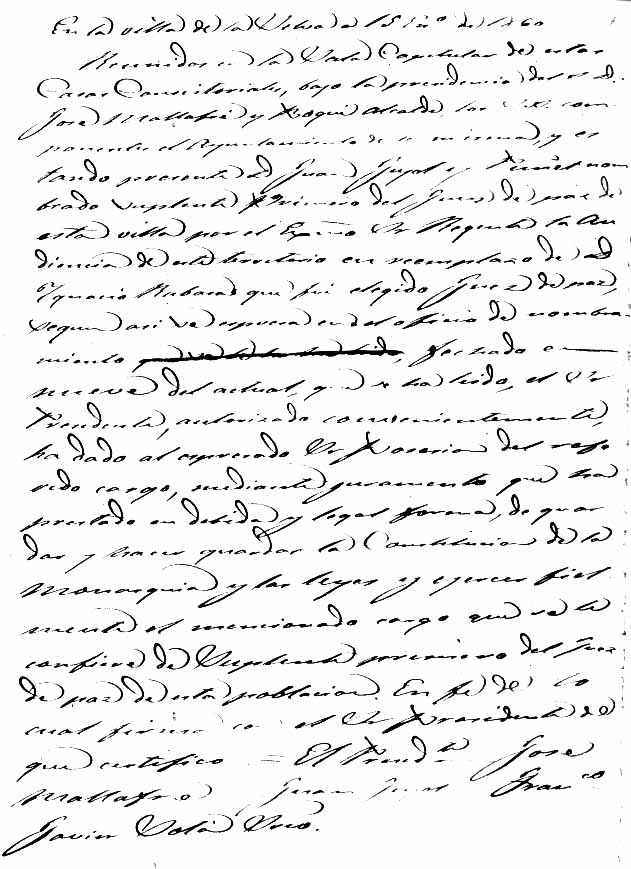 En la villa de la Selva a 15 En.º de 1860
Reunidos en la Sala Capitular de estas
Casas Consistoriales, bajo la presidencia del S. D.
José Mallafré y Roqué Alcalde, los S.S. com
ponentes el Ayuntamiento de la misma, y es
tando presente D. Juan Pujol y nom
brado Suplente Primero del Juez de paz de
esta villa por el Exmo Sr Regente la Au
diencia de este territorio en reemplazo de D
Ygnacio que fué elegido Juez de paz,
segun asi se espresa en el oficio de nombra
miento, fechado en
nueve del actual, que se ha leido, el Sr
Presidente, autorizado convenientemente,
ha dado al espresado Sr Posesion del refe
rido cargo, mediante juramento que ha
prestado en debida y legal forma, de guar
dar y hacer guardar la Constitucion de la
Monarquia y las leyes y ejercer fiel
mente el mencionado cargo que se le
confiere de Suplente primero del Juez
de paz de esta poblacion. En fé de lo
cual firma con el Sr Presidente de
que certifico = El Presid.te José
Mallafré Juan Pujol Fran.co
Javier Solá Srio.